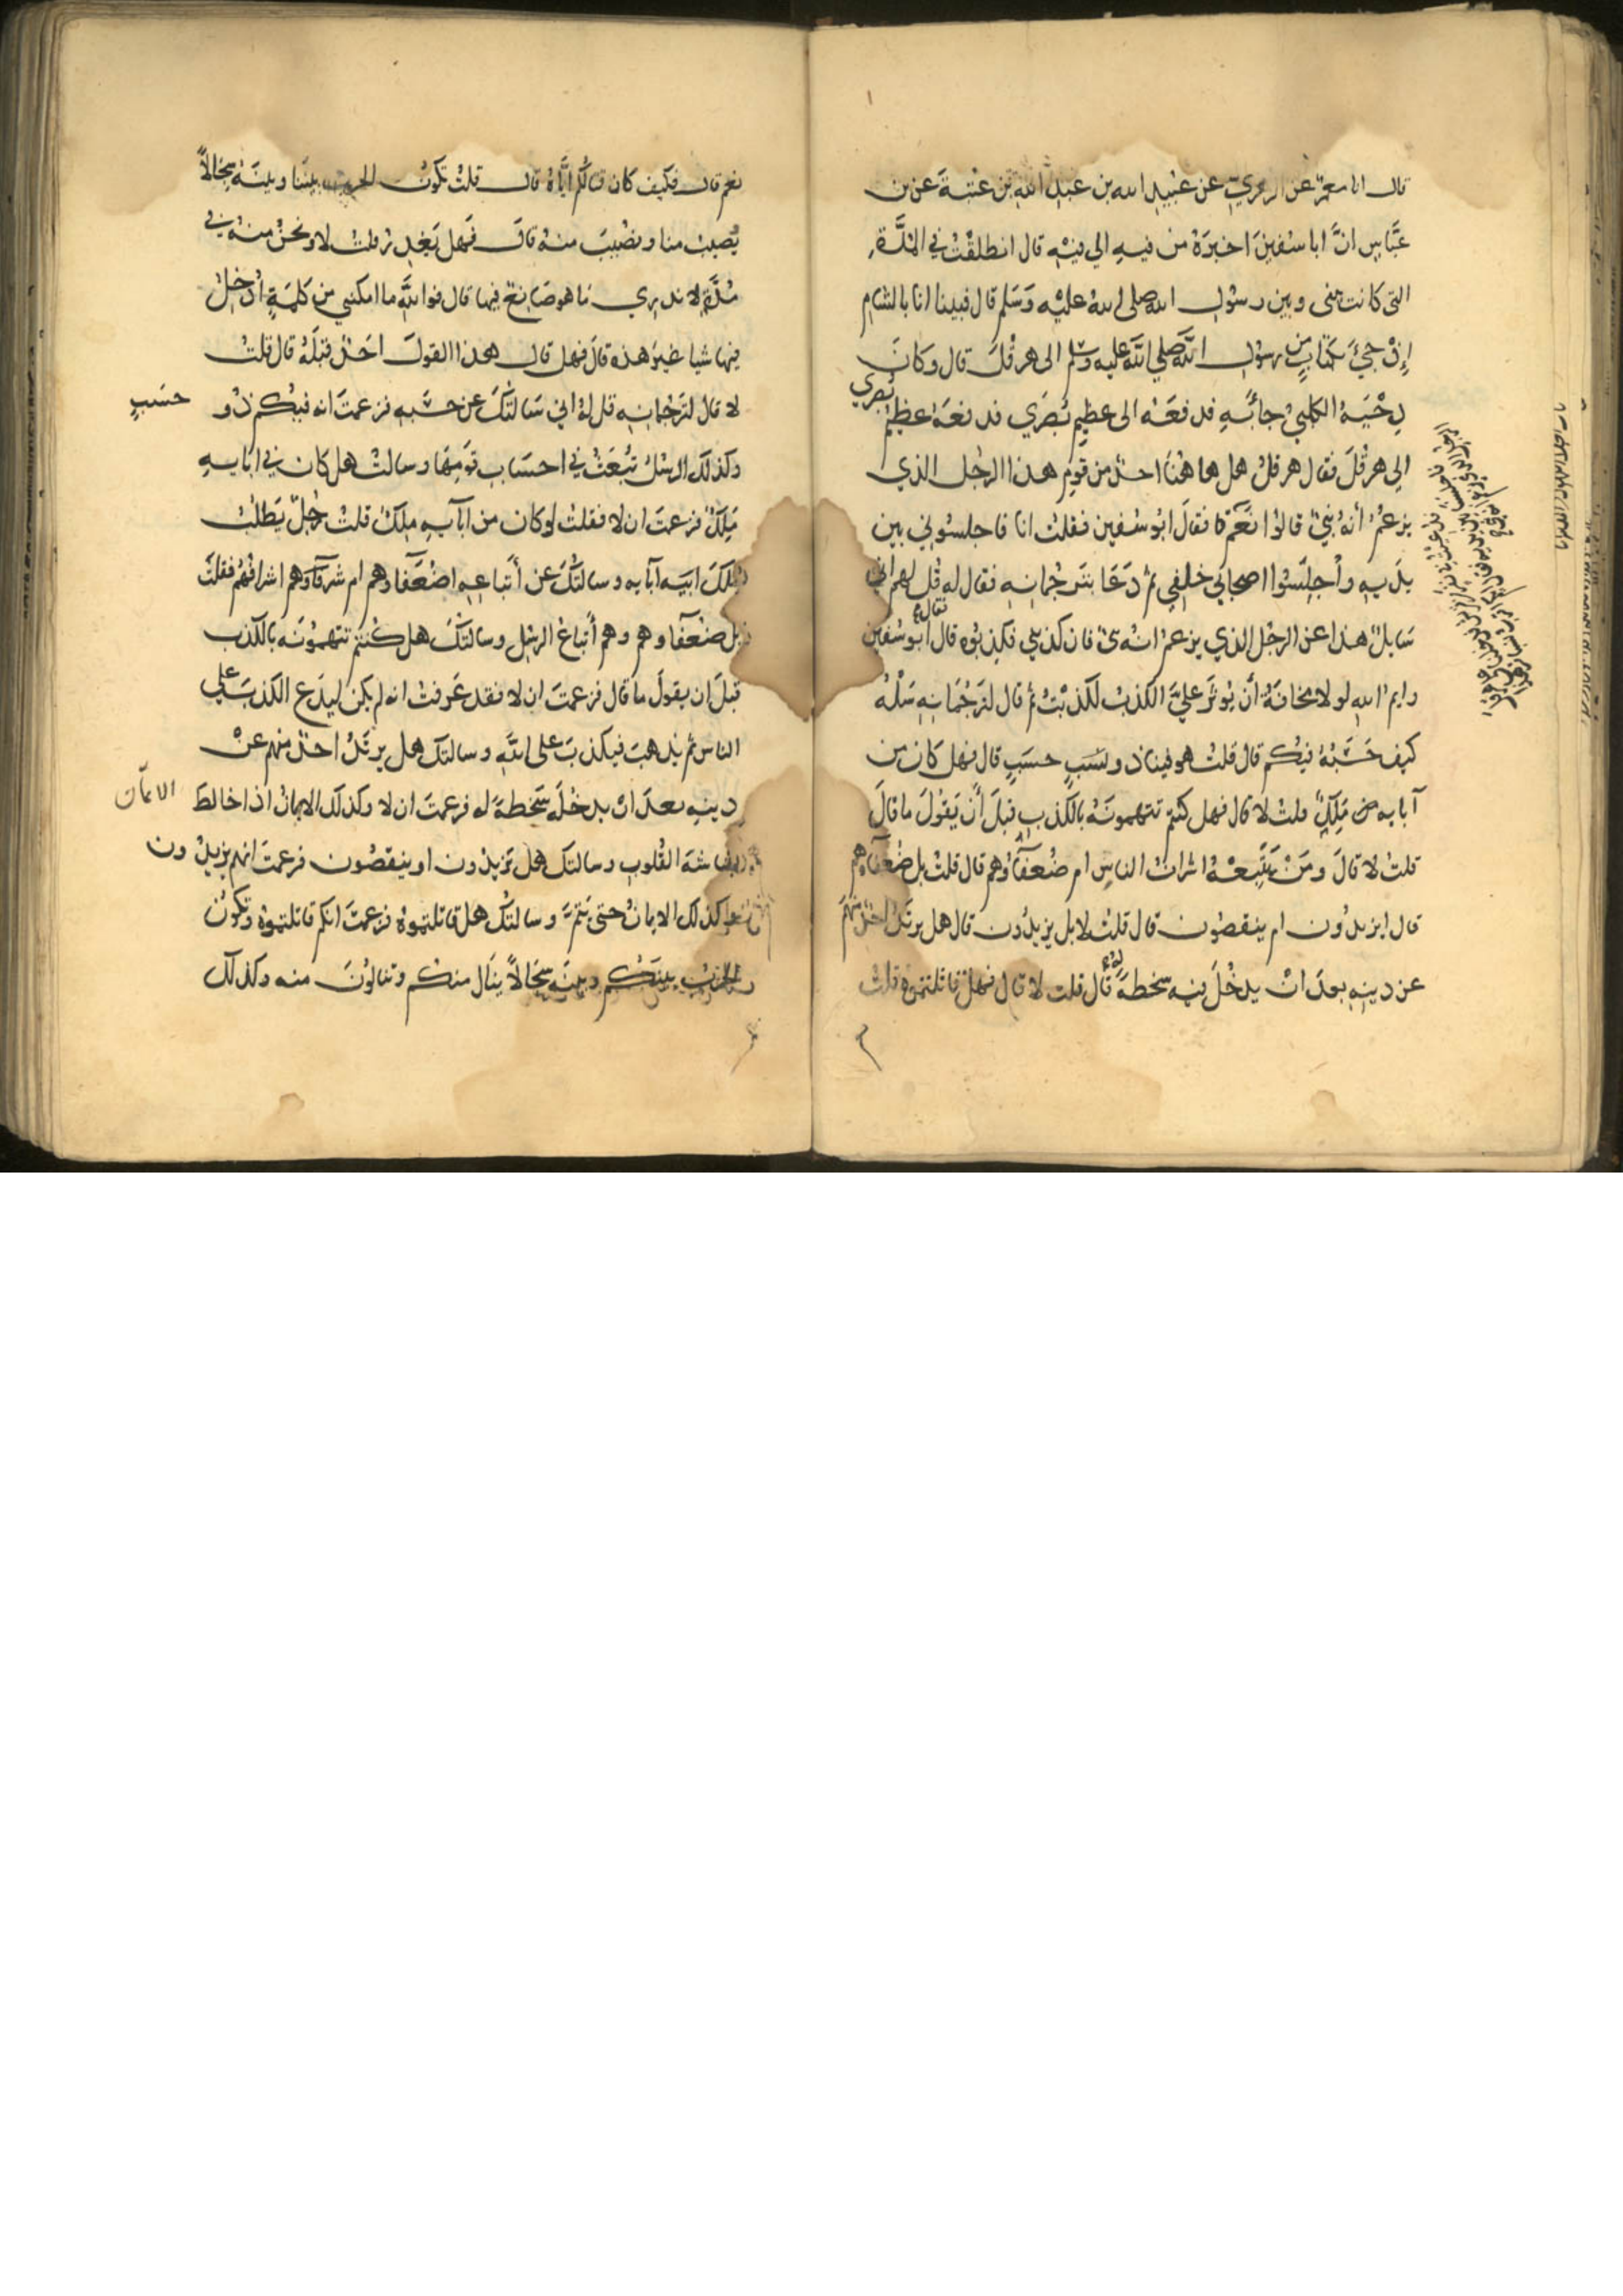 قال انا معمر عن الزهري عن عبيد الله بن عبد الله بن عتبة عن بن
عباس انّ ابا سفين اخبره من فيه الي فيه قال انطلقت في المدّة
التي كانت بيني وبين رسول الله صلى الله عليه وسلم قال فبينا انا بالشام
إذ جيَ بكتابٍ من رسول الله صلي الله عليه وسلم الى هرقل قال وكان
دحية الكلبي جا به فدفعه الى عظيم بصري فدفعه عظيم
بصري
الى هرقل فقال هرقل هل هاهنا احدٌ من قوم هذا الرجل الذي
يزعم أنه نبيّ قالوا نعم فقال ابو سفين فقلت انا فاجلسوني بين
يديه واجلسوا اصحابي خلفي ثم دعا بترجمانه فقال له قل لهم اني
سايلٌ هذا عن الرجل الذي يزعم انه نبي فان كذبني فكذبوه قال ابو سفين
وايم الله لولا مخافة أن يوثر عليّ الكذب لكذبت ثم قال لترجمانه سله
كيف حسبه فيكم قال قلت هو فينا ذو حسبٍ قال فهل كان من
آبايه من ملكٍ قلت لا قال فهل كنتم تتهمونه بالكذب قبل أن يقول ما قال
قلت لا قال ومن يتبعه اشراف الناس ام ضعفاوهم قال قلت بل ضعفاوهم
قال ايزيدون ام ينقصون قال قلت لا بل يزيدون قال هل يرتد احد منهم
عن دينه بعد ان يدخل فيه سخطة له قال قلت لا قال فهل قاتلتموه قلت
نعم قال فكيف كان قتالكم ايّاه قال قلت تكون الحرب بيننا وبينه سجالاً
يصيب منا ونصيب منه قال فهل يغدر قلت لا ونحن منه في
مدّةٍ لا ندري ما هو صانع فيها قال فوالله ما امكنني من كلمة ادخل
فيها شيا غير هذه قال فهل قال هذا القول احدٌ قبله قال قلت
لا قال لترجمانه قل له اني سالتك عن حسبه فزعمت انه فيكم ذو
حسبٍ
وكذلك الرسل تبعث في احساب قومها وسالت هل كان في ابايه
ملك فزعمت ان لا فقلت لو كان من آبايه ملك قلت رجلٌ يطلب
ملك ابيه آبايه وسالتك عن أتباعه اضعفاوهم ام شرفاوهم اشرافهم فقلت
بل ضعفاوهم وهم أتباع الرسل وسالتك هل كنتم تتهمونه بالكذب
قبل ان يقول ما قال فزعمت ان لا فقد عرفت انه لم يكن ليدع الكذب على
الناس ثم يذهب فيكذب على الله وسالتك هل يرتد احدٌ منهم عن
دينه بعد ان يدخله سخطة له فزعمت ان لا وكذلك الايمان اذا خالط
الايمان
بشاشة القلوب وسالتك هل يزيدون او ينقصون فزعمت انهم يزيدون
وكذلك الايمان حتى يتم وسالتك هل قاتلتموه فزعمت انكم قاتلتموه وتكون
الحرب بينكم وبينه سجالاً ينال منكم وتنالون منه وكذلك